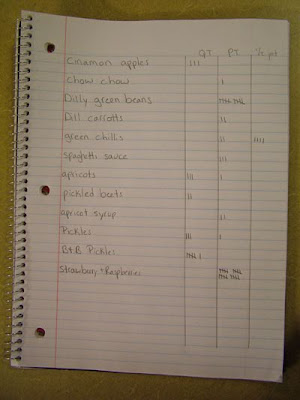 QT PT 1/2 pt
Cinamon apples III
Chow chow I
Dilly green beans IIII IIII
Dill carrotts II
green chillis II IIII
spaghetti sauce III
apricots III I
pickled beets II
apricot syrup II
Pickles III I
B+B Pickles IIII I
Strawbury + Raspberries IIII IIII
IIII IIII